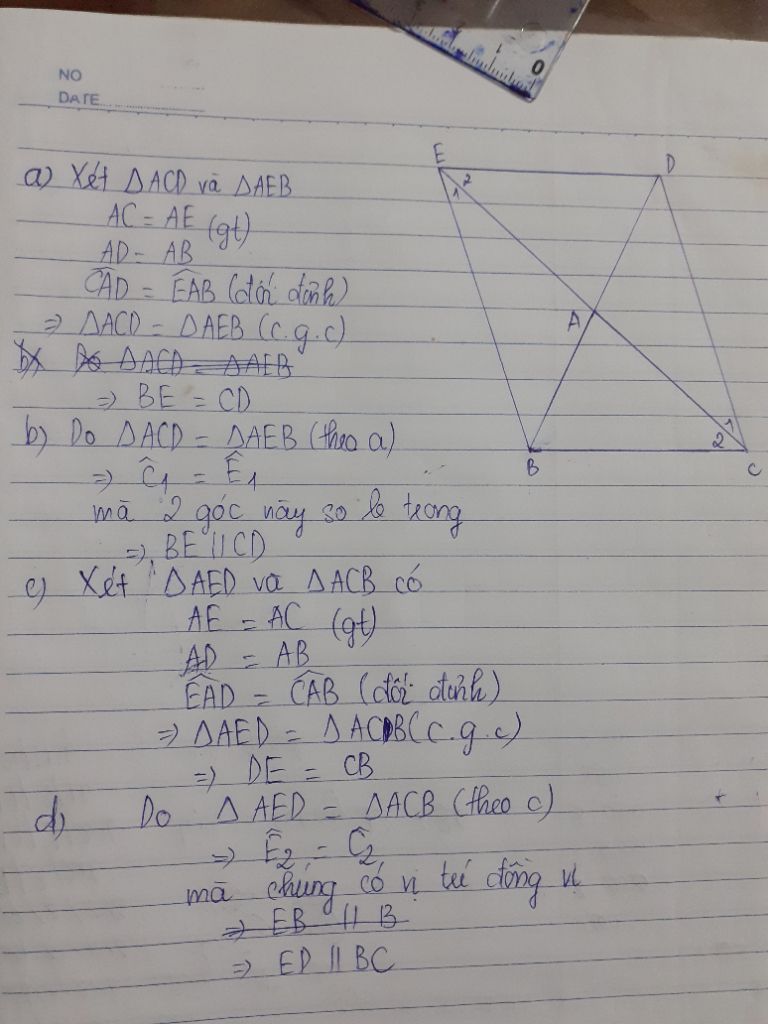 NO
DATE
0
a) Xét ΔACD và ΔAEB
AC = AE (gt)
AD = AB
CAD^ = EAB^ (đối đỉnh)
⇒ ΔACD = ΔAEB (c.g.c)
b) Do ΔACD = ΔAEB
⇒ BE = CD
b) Do ΔACD = ΔAEB (theo a)
⇒ Ĉ1 = Ê1
mà 2 góc này so le trong
⇒ BE // CD
c) Xét ΔAED và ΔACB có
AE = AC (gt)
AD = AB
EAD^ = CAB^ (đối đỉnh)
⇒ ΔAED = ΔACB (c.g.c)
⇒ DE = CB
d) Do ΔAED = ΔACB (theo c)
⇒ Ê2 = Ĉ2
mà chúng có vị trí đồng vị
⇒ EB // B
⇒ ED // BC
E
D
1 2
A
1
2
B
C